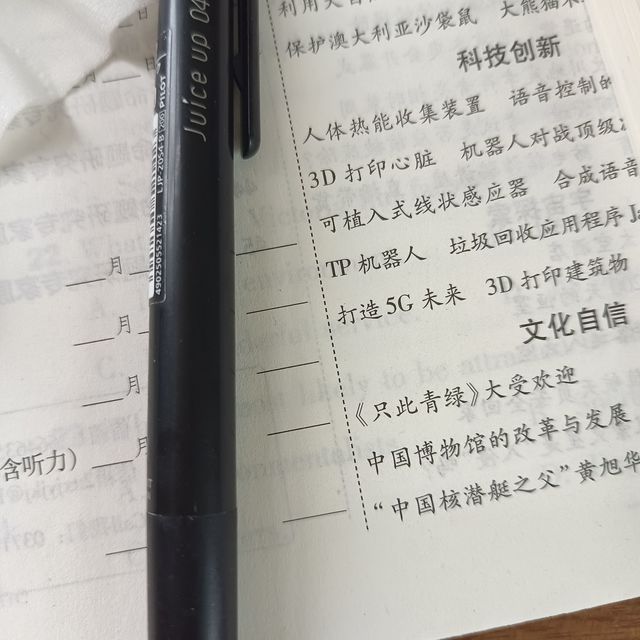 保护澳大利亚沙袋鼠 大熊猫
科技创新
人体热能收集装置 语音控制的
3D 打印心脏 机器人对战顶级
可植入式线状感应器 合成语音
TP 机器人 垃圾回收应用程序
打造 5G 未来 3D 打印建筑物
文化自信
《只此青绿》大受欢迎
中国博物馆的改革与发展
“中国核潜艇之父”黄旭华
月
月
月
月
月
含听力)
Juice up 04
PILOT
LJP-20S4-B
4902505521423